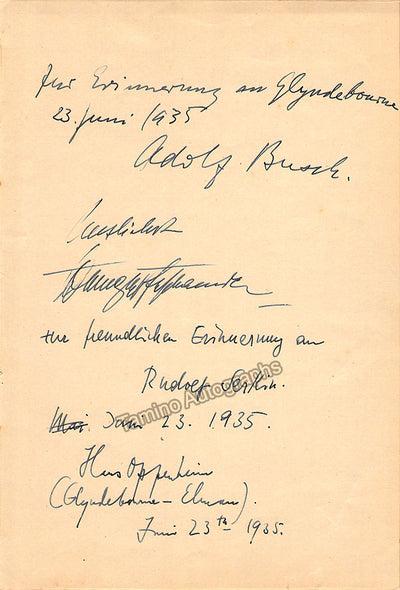 Zur Erinnerung an Glyndebourne
23. Juni 1935
Adolf Busch.
Herzlichst
zur freundlichen Erinnerung an
Rudolf Serkin.
Mai Juni 23. 1935.
Hans Oppenheim
(Glyndebourne - Elman).
Juni 23th 1935.
Tamino Autographs